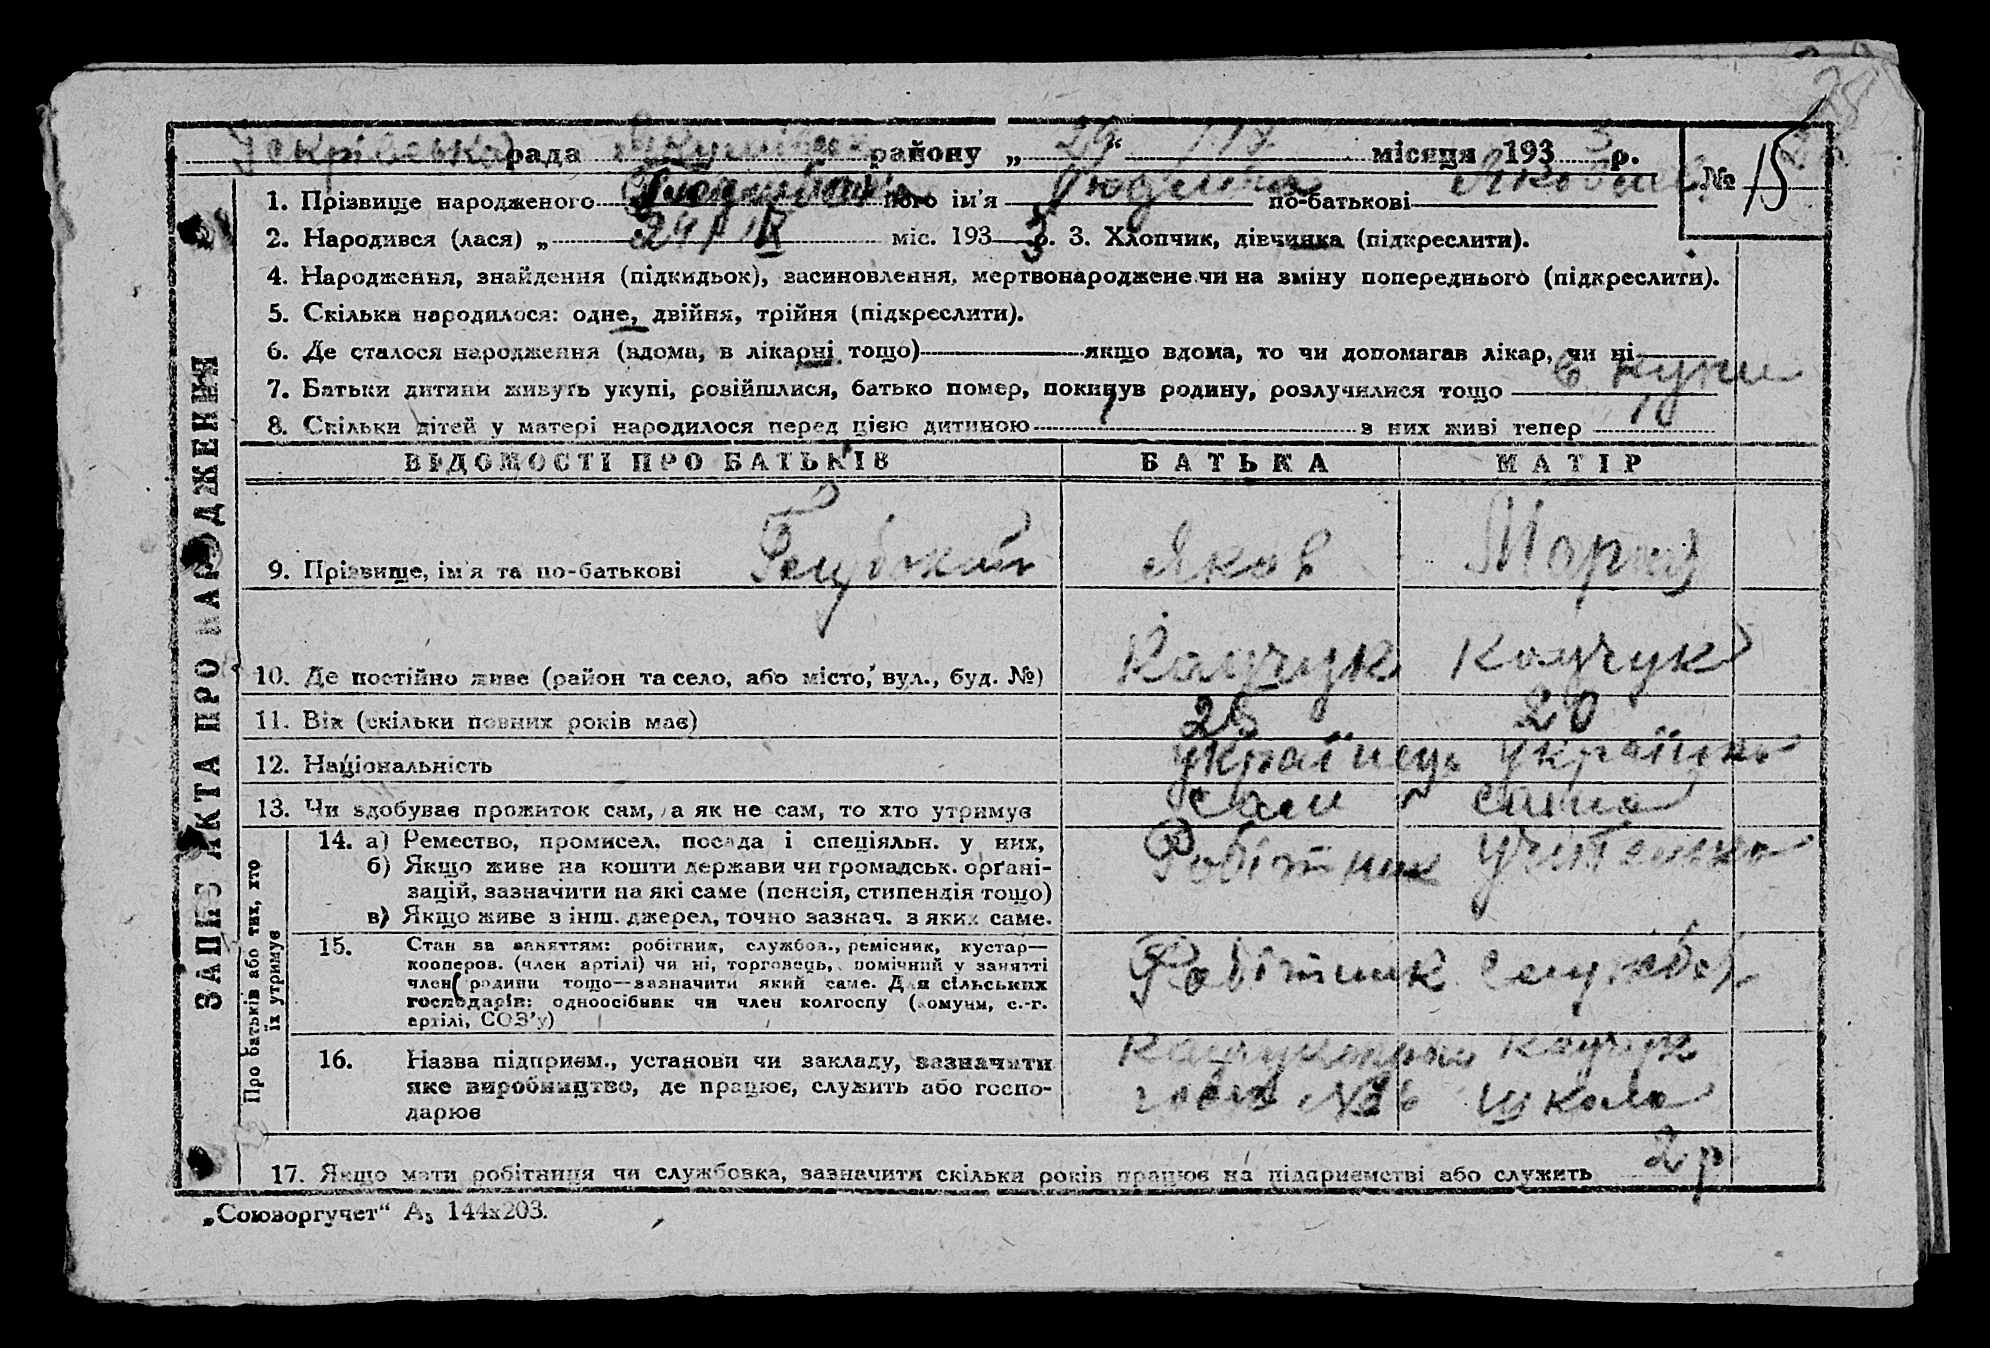 рада району „29“ місяця 1933 р.
№ 15
1. Прізвище народженого його ім'я по-батькові
2. Народився (лася) „ 24/ІХ міс. 1933 р. 3. Хлопчик, дівчинка (підкреслити).
4. Народження, знайдення (підкидьок), засиновлення, мертвонароджене чи на зміну попереднього (підкреслити).
5. Скільки народилося: одне, двійня, трійня (підкреслити).
6. Де сталося народження (вдома, в лікарні тощо) якщо вдома, то чи допомагав лікар, чи ні
7. Батьки дитини живуть укупі, розійшлися, батько помер, покинув родину, розлучилися тощо в купи
8. Скільки дітей у матері народилося перед цією дитиною з них живі тепер
ЗАПИС АКТА ПРО НАРОДЖЕННЯ
ВІДОМОСТІ ПРО БАТЬКІВ БАТЬКА МАТІР
9. Прізвище, ім'я та по-батькові Яков Мария
10. Де постійно живе (район та село, або місто, вул., буд. №) Каучук Каучук
11. Вік (скільки повних років має) 25 20
12. Національність українець українка
13. Чи здобуває прожиток сам, а як не сам, то хто утримує сам сама
Про батьків або тих, хто їх утримує
14. а) Ремество, промисел, посада і спеціяльн. у них, Робітник учителька
б) Якщо живе на кошти держави чи громадськ. орґані-
зацій, зазначити на які саме (пенсія, стипендія тощо)
в) Якщо живе з інш. джерел, точно зазнач. з яких саме.
15. Стан за заняттям: робітник, службов., ремісник, кустар—
кооперов. (член артілі) чи ні, торговець, помічний у занятті
член родини тощо—зазначити який саме. Для сільських
господарів: одноосібник чи член колгоспу (комуни, с.-г.
артілі, СОЗ'у)
Робітник службов
16. Назва підприєм., установи чи закладу, зазначити
яке виробництво, де працює, служить або госпо-
дарює
Каучук
школа
17. Якщо мати робітниця чи службовка, зазначити скільки років працює на підприємстві або служить 2 р
„Союзоргучет“ А₅ 144х203.